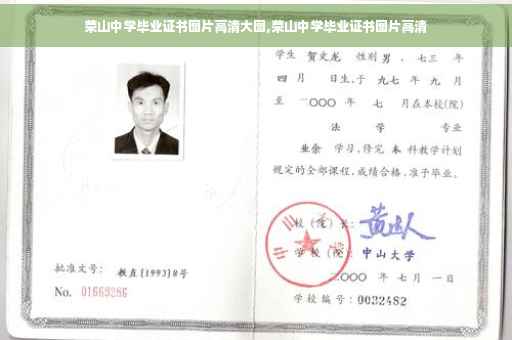 荣山中学毕业证书图片高清大图,荣山中学毕业证书图片高清
学生 贺文龙 性别 男 ,七三 年
四 月 日生,于 九七 年 九 月
至 二〇〇〇 年 七 月在本校(院)
法 学 专业
业余 学习,修完 本 科教学计划
规定的全部课程,成绩合格,准予毕业。
校(院)长:
学校(院): 中山大学
二〇〇〇 年 七 月 一 日
学校编号: 0032482
批准文号: 教直[1993]8号
No. 01669286